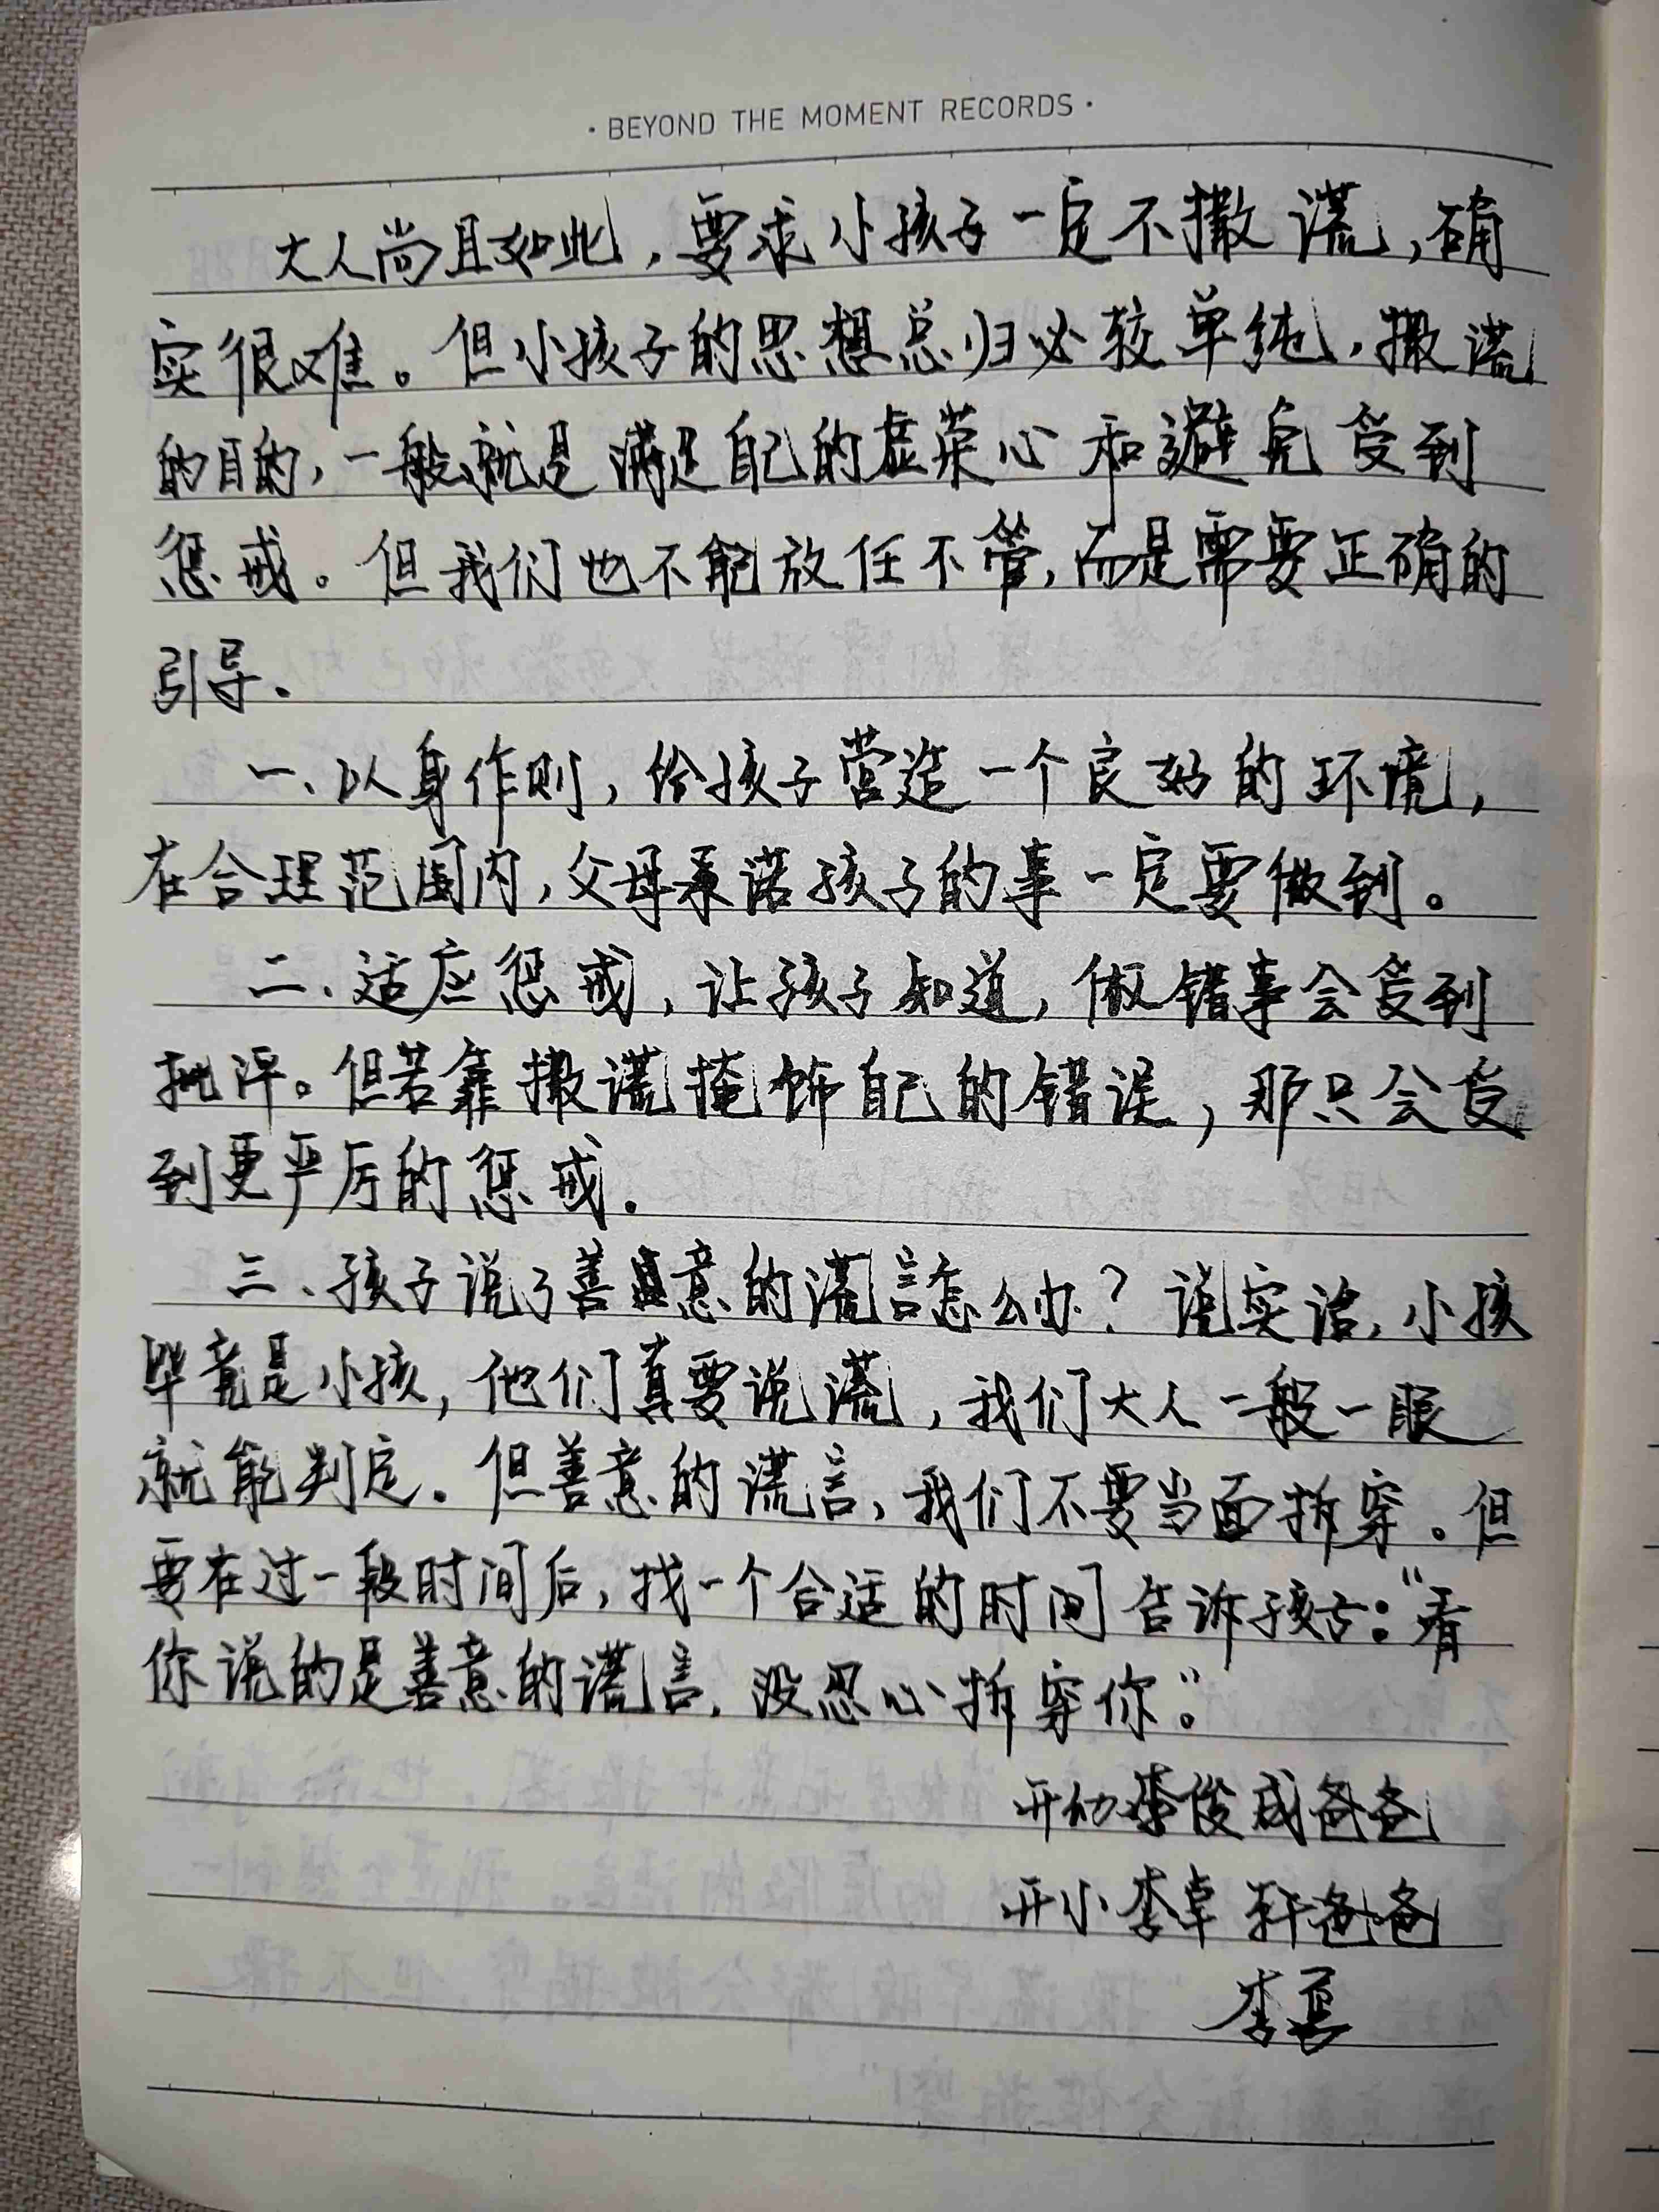 · BEYOND THE MOMENT RECORDS ·
大人尚且如此，要求小孩子一定不撒谎，确
实很难。但小孩子的思想总归必较单纯，撒谎
的目的，一般就是满足自己的虚荣心和避免受到
惩戒。但我们也不能放任不管，而是需要正确的
引导。
一、以身作则，给孩子营造一个良好的环境，
在合理范围内，父母承诺孩子的事一定要做到。
二、适应惩戒，让孩子知道，做错事会受到
批评。但若靠撒谎掩饰自己的错误，那只会受
到更严厉的惩戒。
三、孩子说了善意的谎言怎么办？说实话，小孩
毕竟是小孩，他们真要说谎，我们大人一般一眼
就能判定。但善意的谎言，我们不要当面拆穿。但
要在过一段时间后，找一个合适的时间告诉孩子：“看
你说的是善意的谎言，没忍心拆穿你。”
开幼李俊成爸爸
开小李卓轩爸爸
李